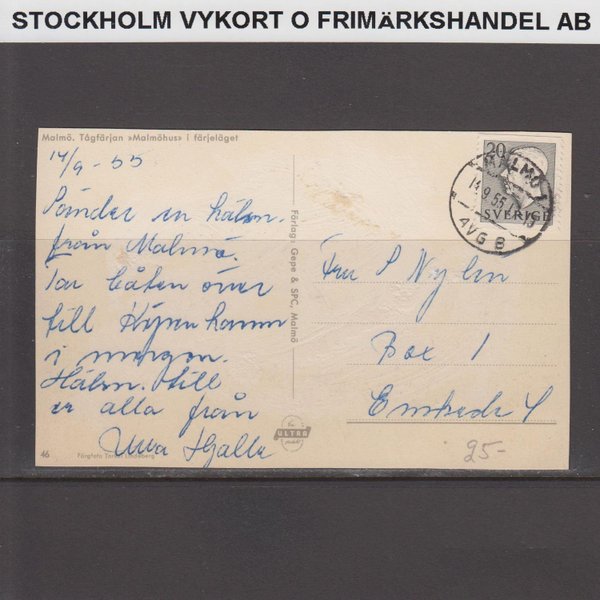 STOCKHOLM VYKORT O FRIMÄRKSHANDEL AB
Malmö. Tågfärjan »Malmöhus» i färjeläget
14/9 - 55
Sänder en hälsn.
från Malmö.
Tar båten över
till Köpenhamn
i morgon.
Hälsn. till
er alla från
Förlag: Gepe & SPC, Malmö
20
SVERIGE
MALMÖ 1
14.9.55
AVG B
Fru S Nylén
Box 1
Enskede 4
ULTRA
46
Färgfoto
25-